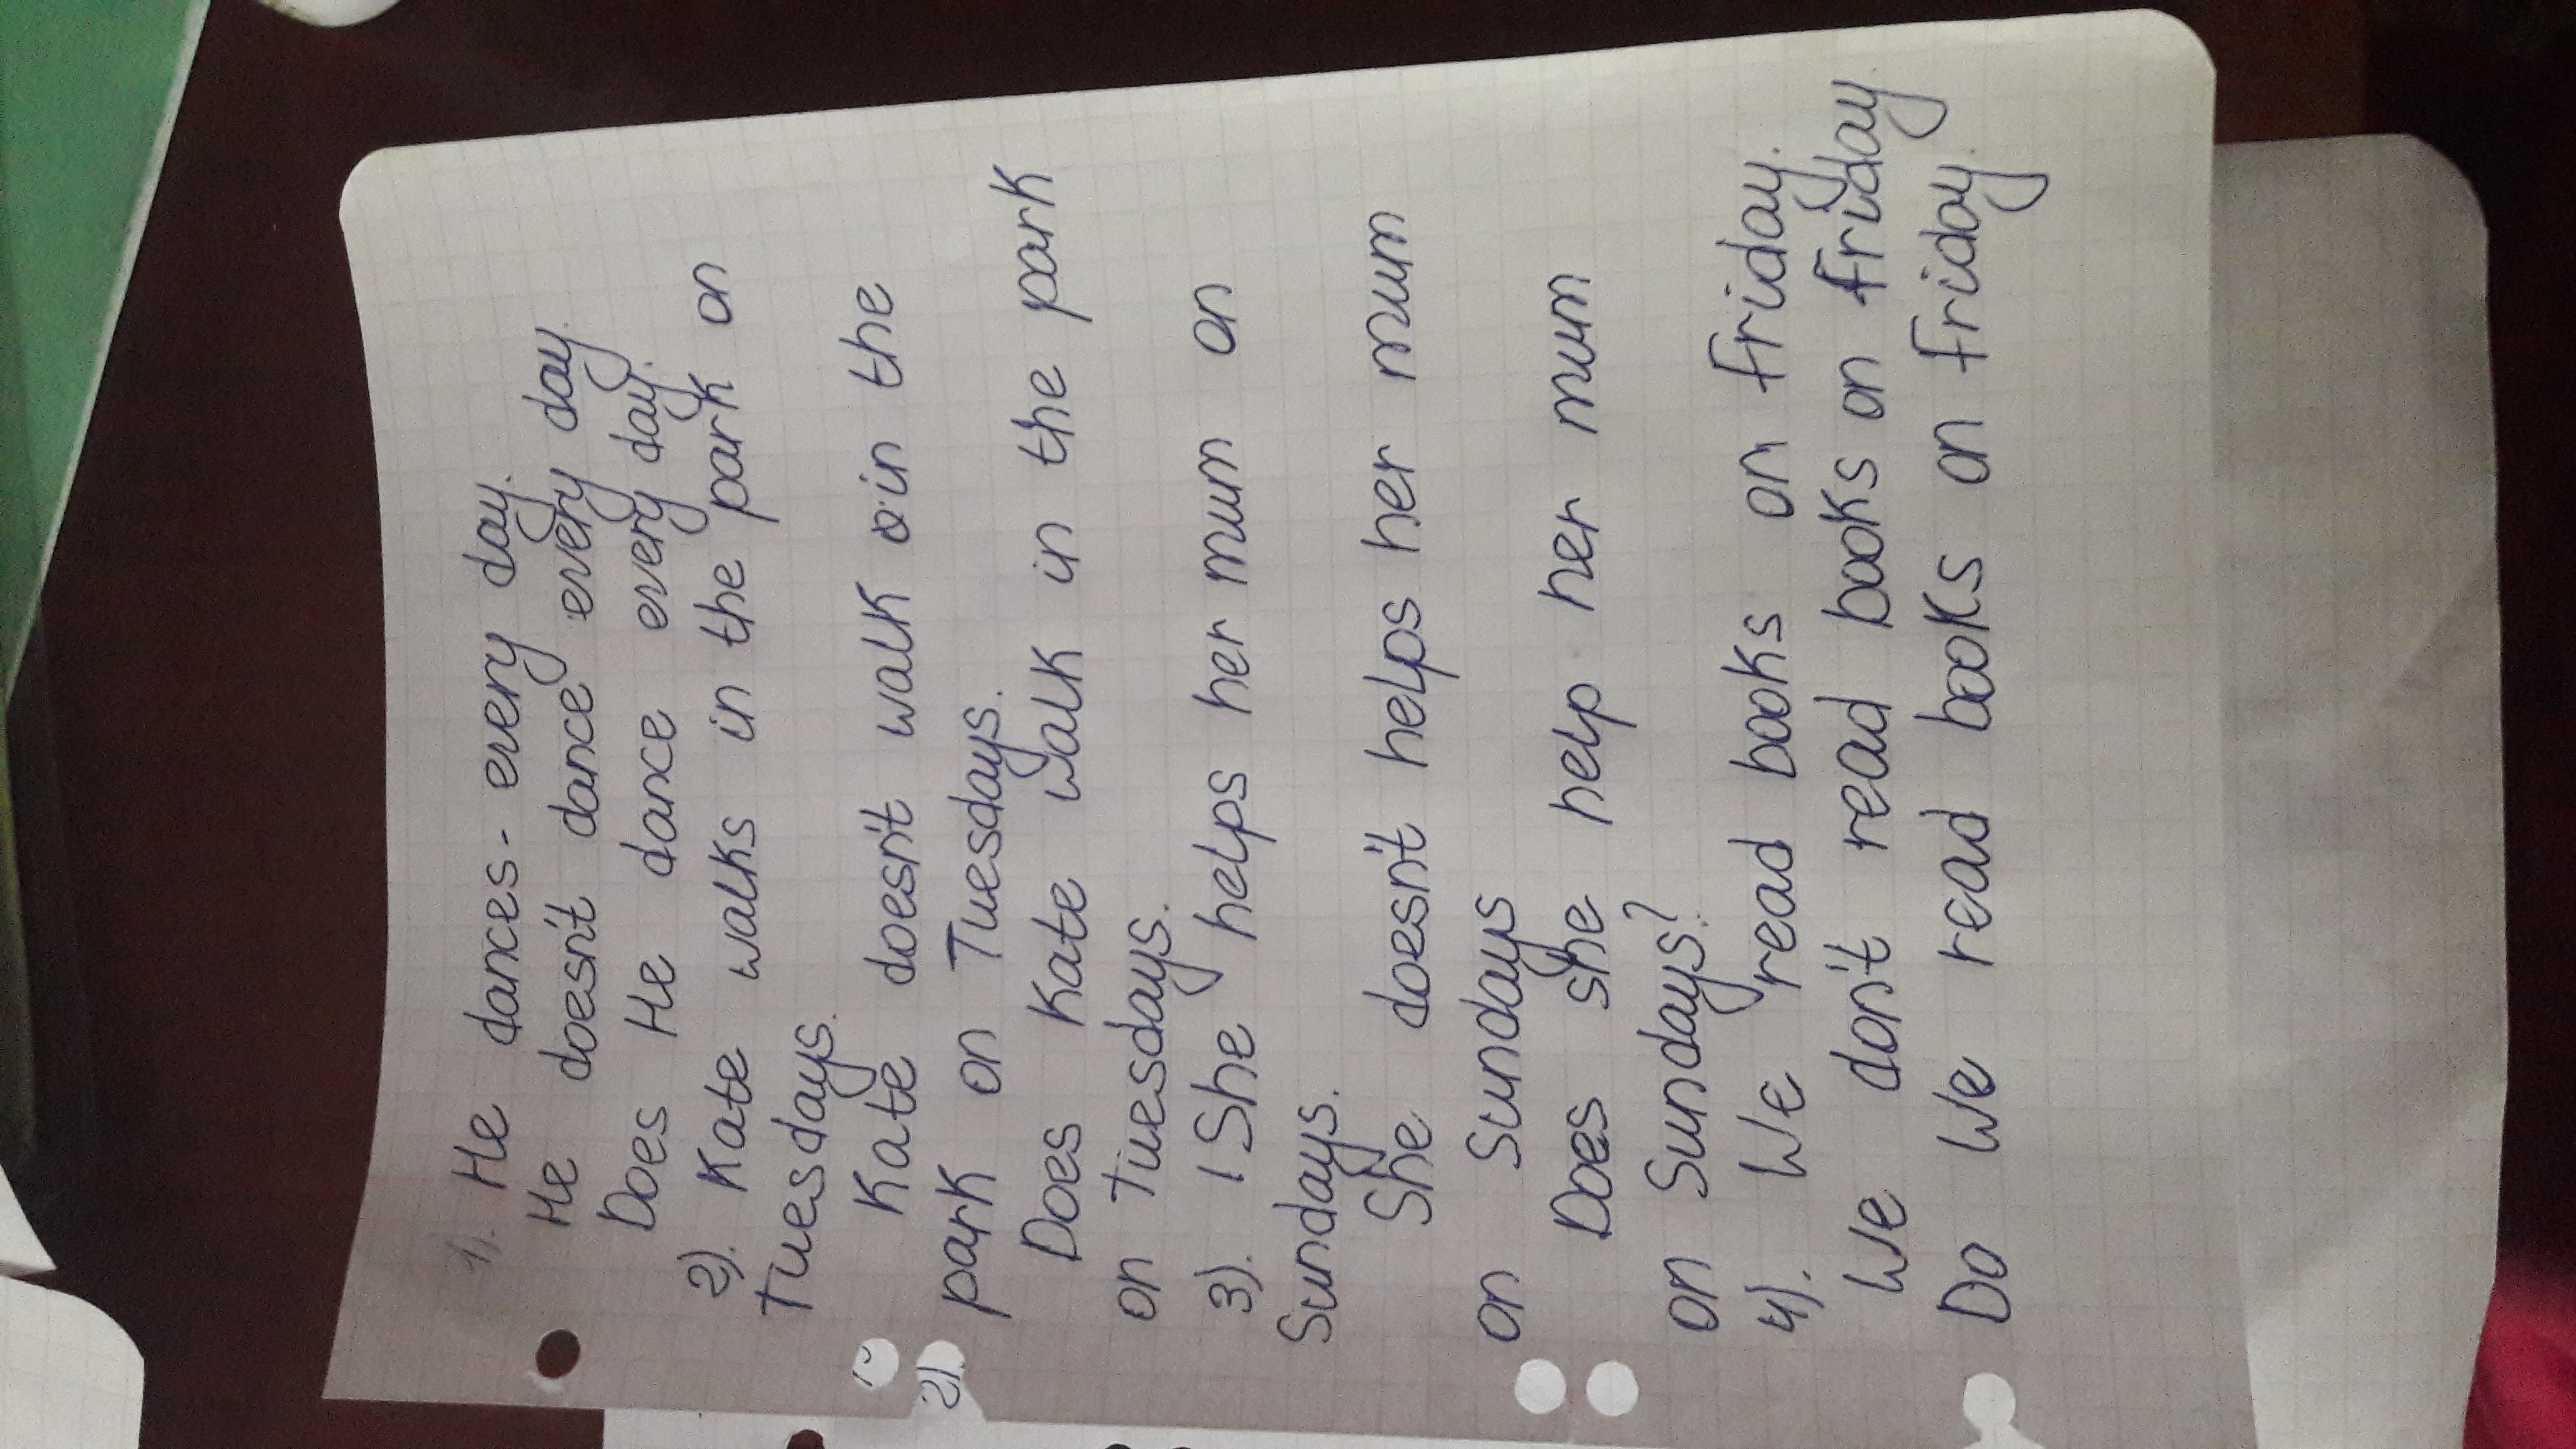 1). He dances- every day.
He doesn't dance every day.
Does He dance every day.
2). Kate walks in the park on
Tuesdays.
Kate doesn't walk in the
park on Tuesdays.
Does Kate walk in the park
on Tuesdays.
3). She helps her mum on
Sundays.
She doesn't helps her mum
on Sundays
Does she help her mum
on Sundays?
4). We read books on friday.
We don't read books on friday
Do We read books on friday.
2).